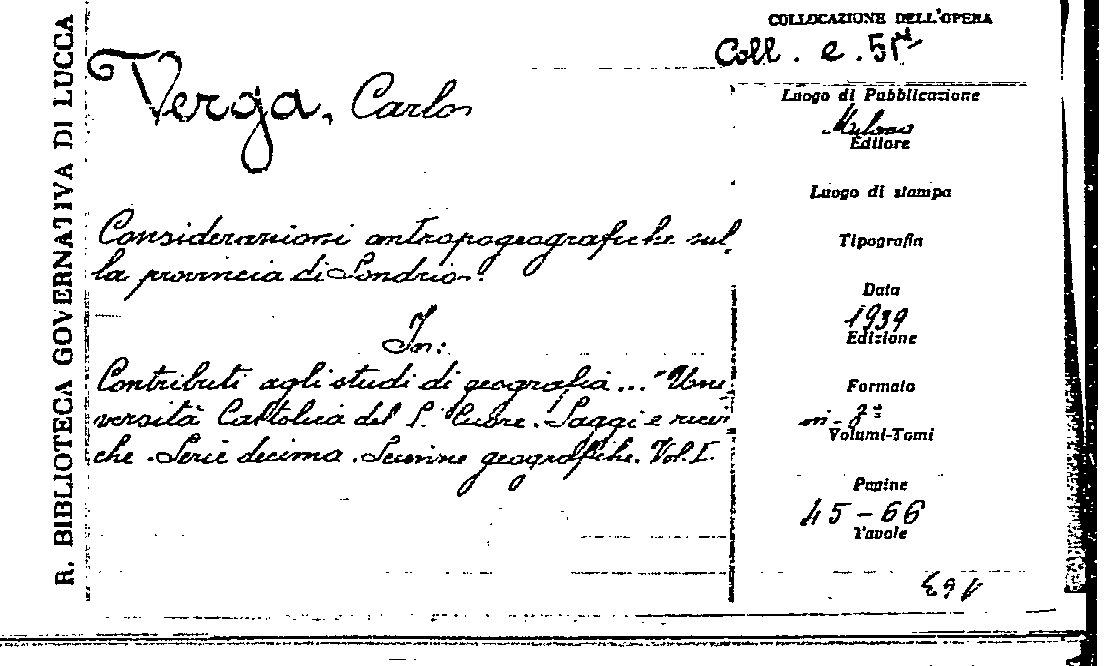 R. BIBLIOTECA GOVERNATIVA DI LUCCA
Verga, Carlo
Considerazioni antropogeografiche sul-
la provincia di Sondrio.
In:
Contributi agli studi di geografia... "Uni
versità Cattolica del S. Cuore. Saggi e ricer
che. Serie decima. Scienze geografiche. Vol. I.
COLLOCAZIONE DELL'OPERA
Coll. e. 51
Luogo di Pubblicazione
Milano
Editore
Luogo di stampa
Tipografia
Data
1939
Edizione
Formato
in-8º
Volumi-Tomi
Pagine
45-66
Tavole